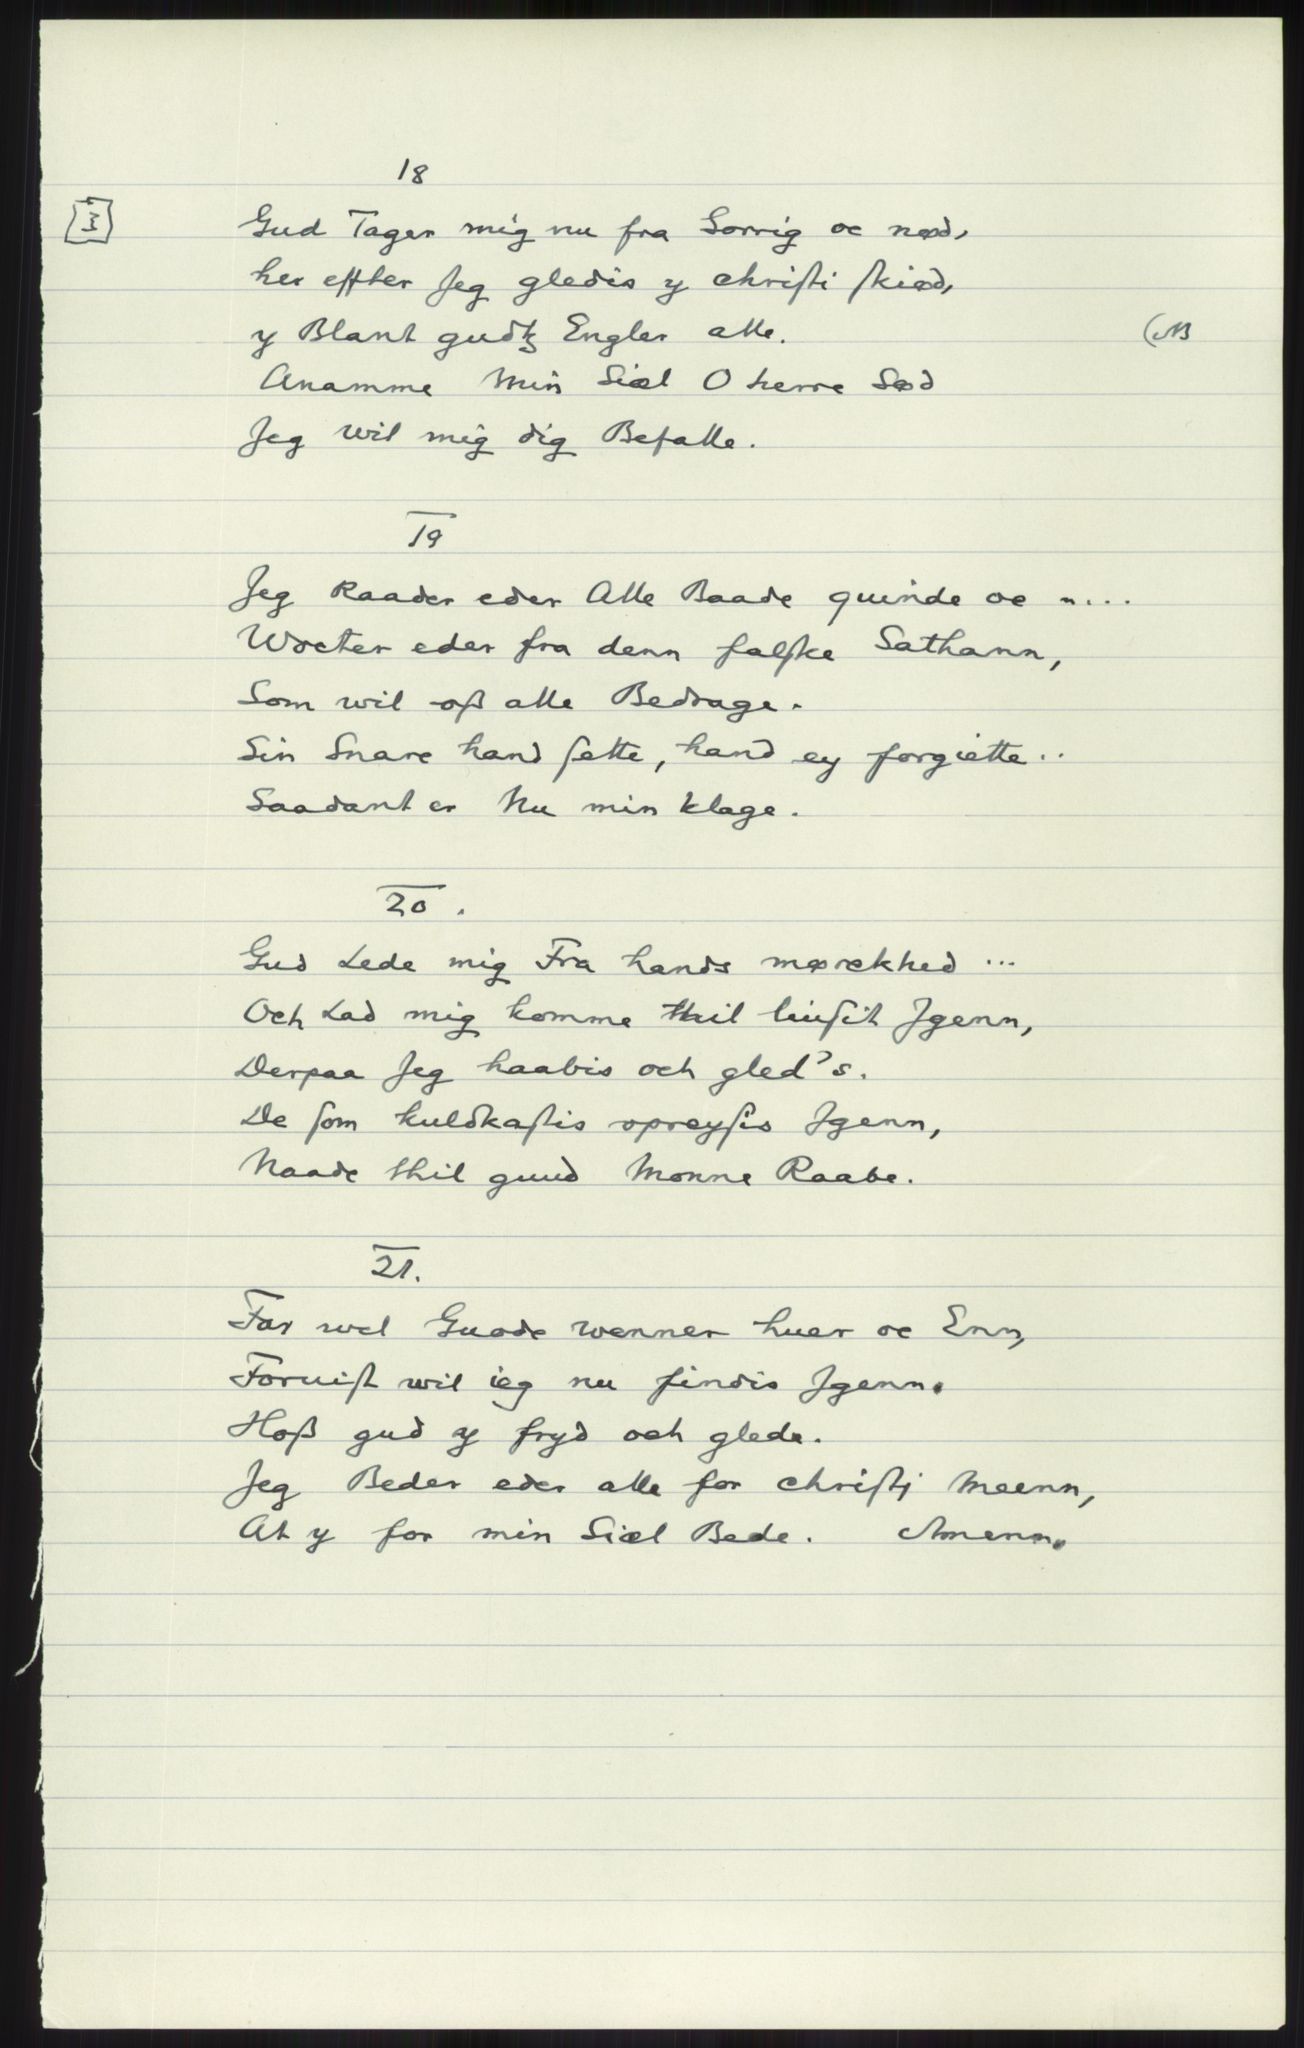 18
3
Gud Tager mig nu fra Sorrig oc nød,
her effter Jeg gledis y christi skiød,
y Blant gudtz Engler alle. (NB
Anamme Min Siæl O herre Sød
Jeg wil mig dig Befalle.
19
Jeg Raader eder Alle Baade quinde oc m...
Wocter eder fra denn falske Sathann,
Som wil oß alle Bedrage.
Sin Snare hand sette, hand ey forgiette..
Saadant er Nu min klage.
20.
Gud Lede mig Fra hands mørckhed ...
Och Lad mig komme thil liusit Jgenn,
Derpaa Jeg haabis och gled's.
De som kuldkastis opreysis Jgenn,
Naade thil guud Monne Raabe.
21.
Far wel Guode wenner huer oc Enn,
Foruist wil ieg nu findis Jgenn.
Hoß gud y fryd och glede.
Jeg Beder eder alle for christj Meenn,
At y for min Siæl Bede. Amenn.